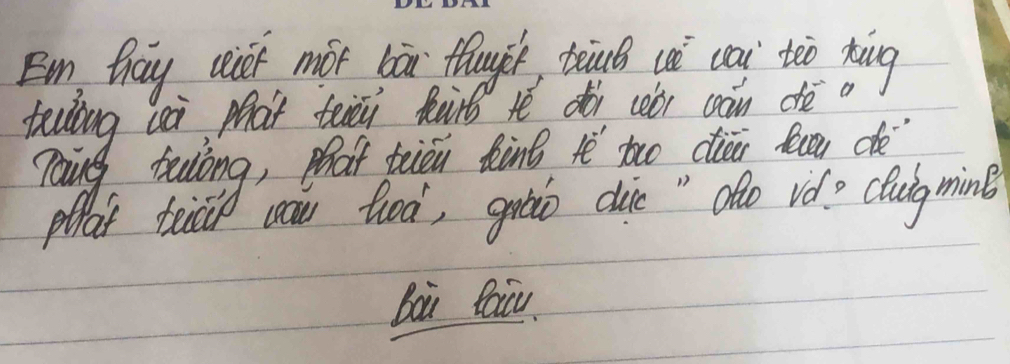 ĐỀ BÀI
Em hãy viết một bài thuyết trình về vai trò tăng
trưởng và phát triển kinh tế đối với vấn đề "
Tăng trưởng, phát triển kinh tế tạo điều kiện để
phát triển văn hoá, giáo dục" cho vd? chứng minh
Bài làm.